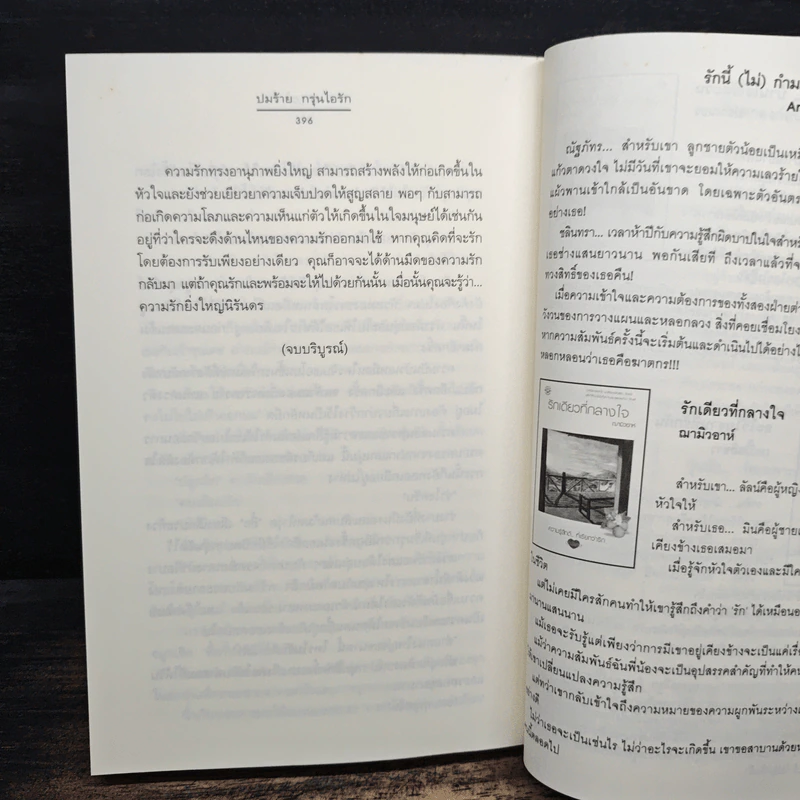 ปมร้าย กรุ่นไอรัก
396
ความรักทรงอานุภาพยิ่งใหญ่ สามารถสร้างพลังให้ก่อเกิดขึ้นใน
หัวใจและยังช่วยเยียวยาความเจ็บปวดให้สูญสลาย พอๆ กับสามารถ
ก่อเกิดความโลภและความเห็นแก่ตัวให้เกิดขึ้นในใจมนุษย์ได้เช่นกัน
อยู่ที่ว่าใครจะดึงด้านไหนของความรักออกมาใช้ หากคุณคิดที่จะรัก
โดยต้องการรับเพียงอย่างเดียว คุณก็อาจจะได้ด้านมืดของความรัก
กลับมา แต่ถ้าคุณรักและพร้อมจะให้ไปด้วยกันนั้น เมื่อนั้นคุณจะรู้ว่า...
ความรักยิ่งใหญ่นิรันดร
(จบบริบูรณ์)
รักนี้ (ไม่) กำม
ณัฐภัทร... สำหรับเขา ลูกชายตัวน้อยเป็นเหมื
แก้วตาดวงใจ ไม่มีวันที่เขาจะยอมให้ความเลวร้ายใ
แผ้วพานเข้าใกล้เป็นอันขาด โดยเฉพาะตัวอันตร
อย่างเธอ!
ชลินทรา... เวลาห้าปีกับความรู้สึกผิดบาปในใจสำหรั
เธอช่างแสนยาวนาน พอกันเสียที ถึงเวลาแล้วที่จะ
ทวงสิทธิ์ของเธอคืน!
เมื่อความเข้าใจและความต้องการของทั้งสองฝ่ายต่า
วังวนของการวางแผนและหลอกลวง สิ่งที่คอยเชื่อมโยง
หากความสัมพันธ์ครั้งนี้จะเริ่มต้นและดำเนินไปได้อย่างไ
หลอกหลอนว่าเธอคือฆาตกร!!!
รักเดียวที่กลางใจ
ฌามิวอาห์
รักเดียวที่กลางใจ
ฌามิวอาห์
ความรู้สึกดี... ที่เรียกว่ารัก
สำหรับเขา... ลัลน์คือผู้หญิง
หัวใจให้
สำหรับเธอ... มินคือผู้ชาย
เคียงข้างเธอเสมอมา
เมื่อรู้จักหัวใจตัวเองและมีใค
ชีวิต
แต่ไม่เคยมีใครสักคนทำให้เขารู้สึกถึงคำว่า 'รัก' ได้เหมือน
นานแสนนาน
แม้เธอจะรับรู้แต่เพียงว่าการมีเขาอยู่เคียงข้างจะเป็นแค่เรื่อ
แม้ว่าความสัมพันธ์ฉันพี่น้องจะเป็นอุปสรรคสำคัญที่ทำให้คน
เปลี่ยนแปลงความรู้สึก
แต่ทว่าเขากลับเข้าใจถึงความหมายของความผูกพันระหว่าง
ไม่ว่าเธอจะเป็นเช่นไร ไม่ว่าอะไรจะเกิดขึ้น เขาขอสาบานด้วย
ตลอดไป